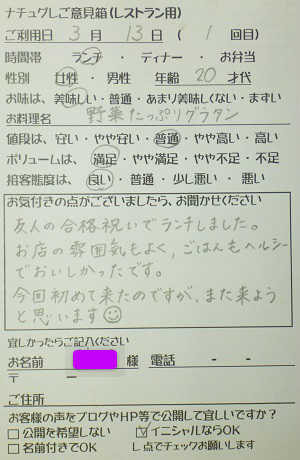 ナチュグしご意見箱(レストラン用)
ご利用日 3月 13日( 1 回目)
時間帯 ランチ・ディナー・お弁当
性別 女性・男性 年齢 20才代
お味は、美味しい・普通・あまり美味しくない・まずい
お料理名 野菜たっぷりグラタン
値段は、安い・やや安い・普通・やや高い・高い
ボリュームは、満足・やや満足・やや不足・不足
接客態度は、良い・普通・少し悪い・悪い
お気付きの点がございましたら、お聞かせください
友人の合格祝いでランチしました。
お店の雰囲気もよく、ごはんもヘルシー
でおいしかったです。
今回初めて来たのですが、また来よう
と思います☺
宜しかったらご記入ください
お名前 様 電話 - -
〒 -
ご住所
お客様の声をブログやHP等で公開して宜しいですか?
□公開を希望しない ☑イニシャルならOK
□名前付きでOK し点でチェックお願いします